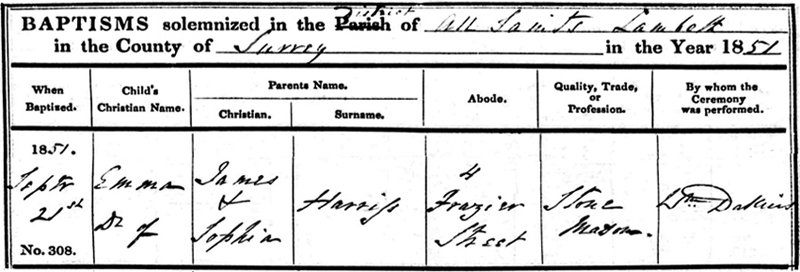 District
BAPTISMS solemnized in the Parish of All Saints Lambeth
in the County of Surrey in the Year 1851
When
Baptized.
Child's
Christian Name.
Parents Name.
Christian.
Surname.
Abode.
Quality, Trade,
or
Profession.
By whom the
Ceremony
was performed.
1851.
Septr
21st
No. 308.
Emma
Dr of
James
&
Sophia
Harriss
4
Frazier
Street
Stone
Mason.
Wm Dakins